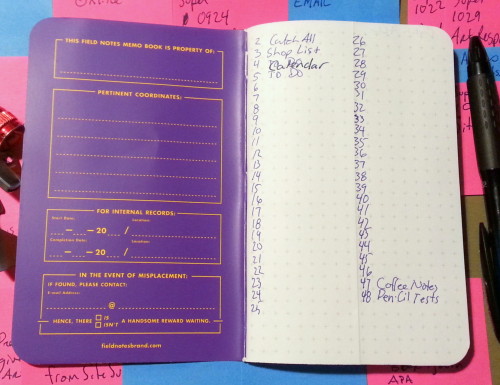 Online
Super
0924
EMAIL
1022
Super
1029
THIS FIELD NOTES MEMO BOOK IS PROPERTY OF:
PERTINENT COORDINATES:
FOR INTERNAL RECORDS:
Start Date: Location:
— — 20 /
Completion Date: Location:
— — 20 /
IN THE EVENT OF MISPLACEMENT:
IF FOUND, PLEASE CONTACT:
E-mail Address:
@
HENCE, THERE IS A HANDSOME REWARD WAITING.
ISN'T
fieldnotesbrand.com
2 Catch All
3 Shop List
4 Calendar
5 To Do
6
7
8
9
10
11
12
13
14
15
16
17
18
19
20
21
22
23
24
25
26
27
28
29
30
31
32
33
34
35
36
37
38
39
40
41
42
43
44
45
46
47 Coffee Notes
48 Pencil Tests
from
APA